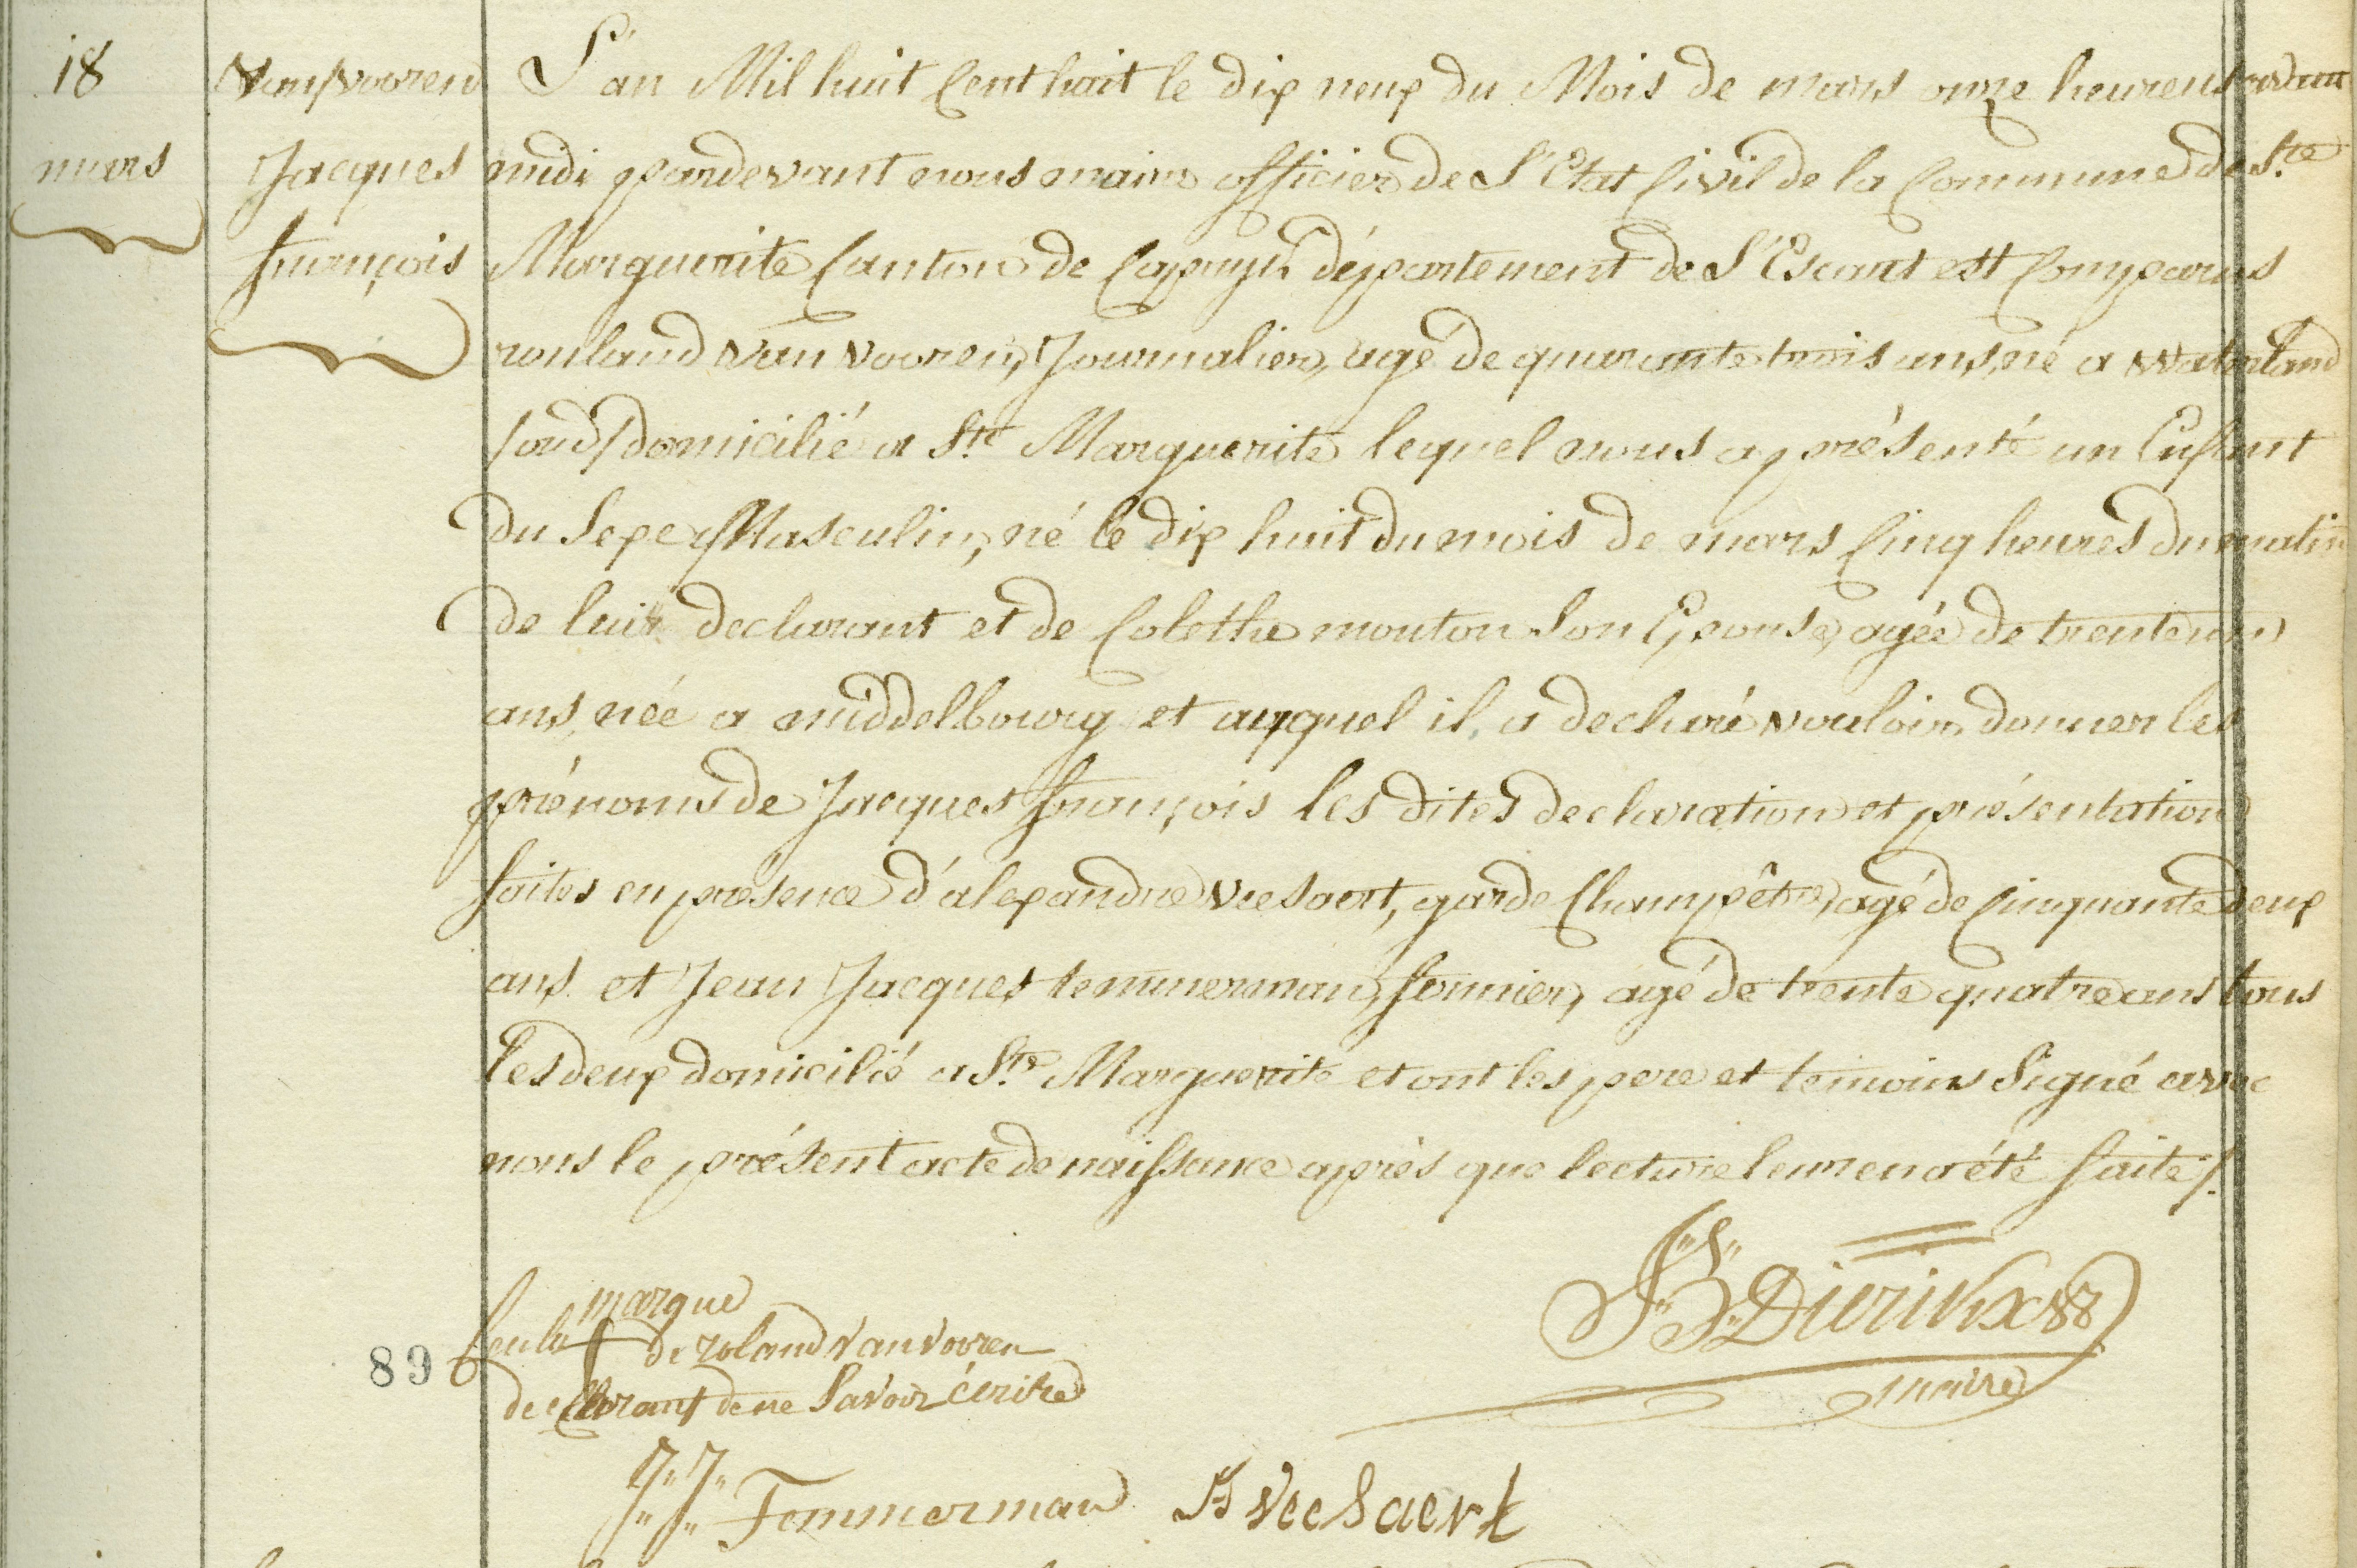 18
mars
Van Vooren
Jacques
françois
L'an Mil huit Cent huit le dix neuf du Mois de mars onze heures avant
midi pardevant nous maire officier de L'Etat Civil de la Commune de Ste
Marguerite Canton de département de L'Escaut est Comparus
rouland van vooren, Journalier, agé de quarante trois ans, né a Waterland
domicilié a Ste Marguerite lequel nous a présenté un Enfant
du Sexe Masculin, né le dix huit du mois de mars Cinq heures du matin
de lui declarant et de Colethe mouton Son Epouse, agée de trente un
ans, née a middelbourg et auquel il, a declaré vouloir donner les
prénoms de Jacques françois les dites declaration et présentation
faites en présence d'alexandre veesaert, garde Champêtre, agé de Cinquante deux
ans et Jean Jacques temmerman, fermier, agé de trente quatre ans tous
les deux domicilié a Ste Marguerite et ont les pere et temoins Signé avec
nous le présent acte de naissance après que lecture leur en a été faite /.
marque
de roland Van Vooren
declarant de ne Savoir écrire
89
maire
J: J: Temmerman
veesaert